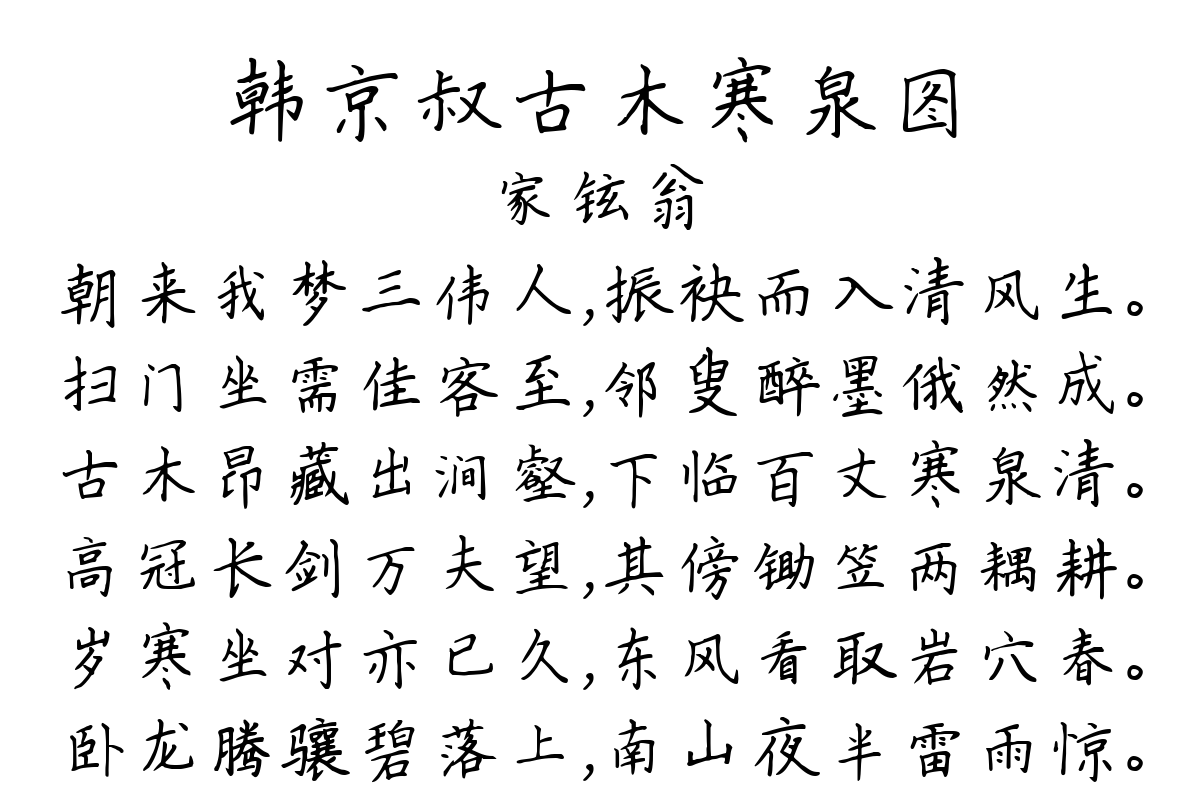 韩京叔古木寒泉图
家铉翁
朝来我梦三伟人,振袂而入清风生。
扫门坐需佳客至,邻叟醉墨俄然成。
古木昂藏出涧壑,下临百丈寒泉清。
高冠长剑万夫望,其傍锄笠两耦耕。
岁寒坐对亦已久,东风看取岩穴春。
卧龙腾骧碧落上,南山夜半雷雨惊。